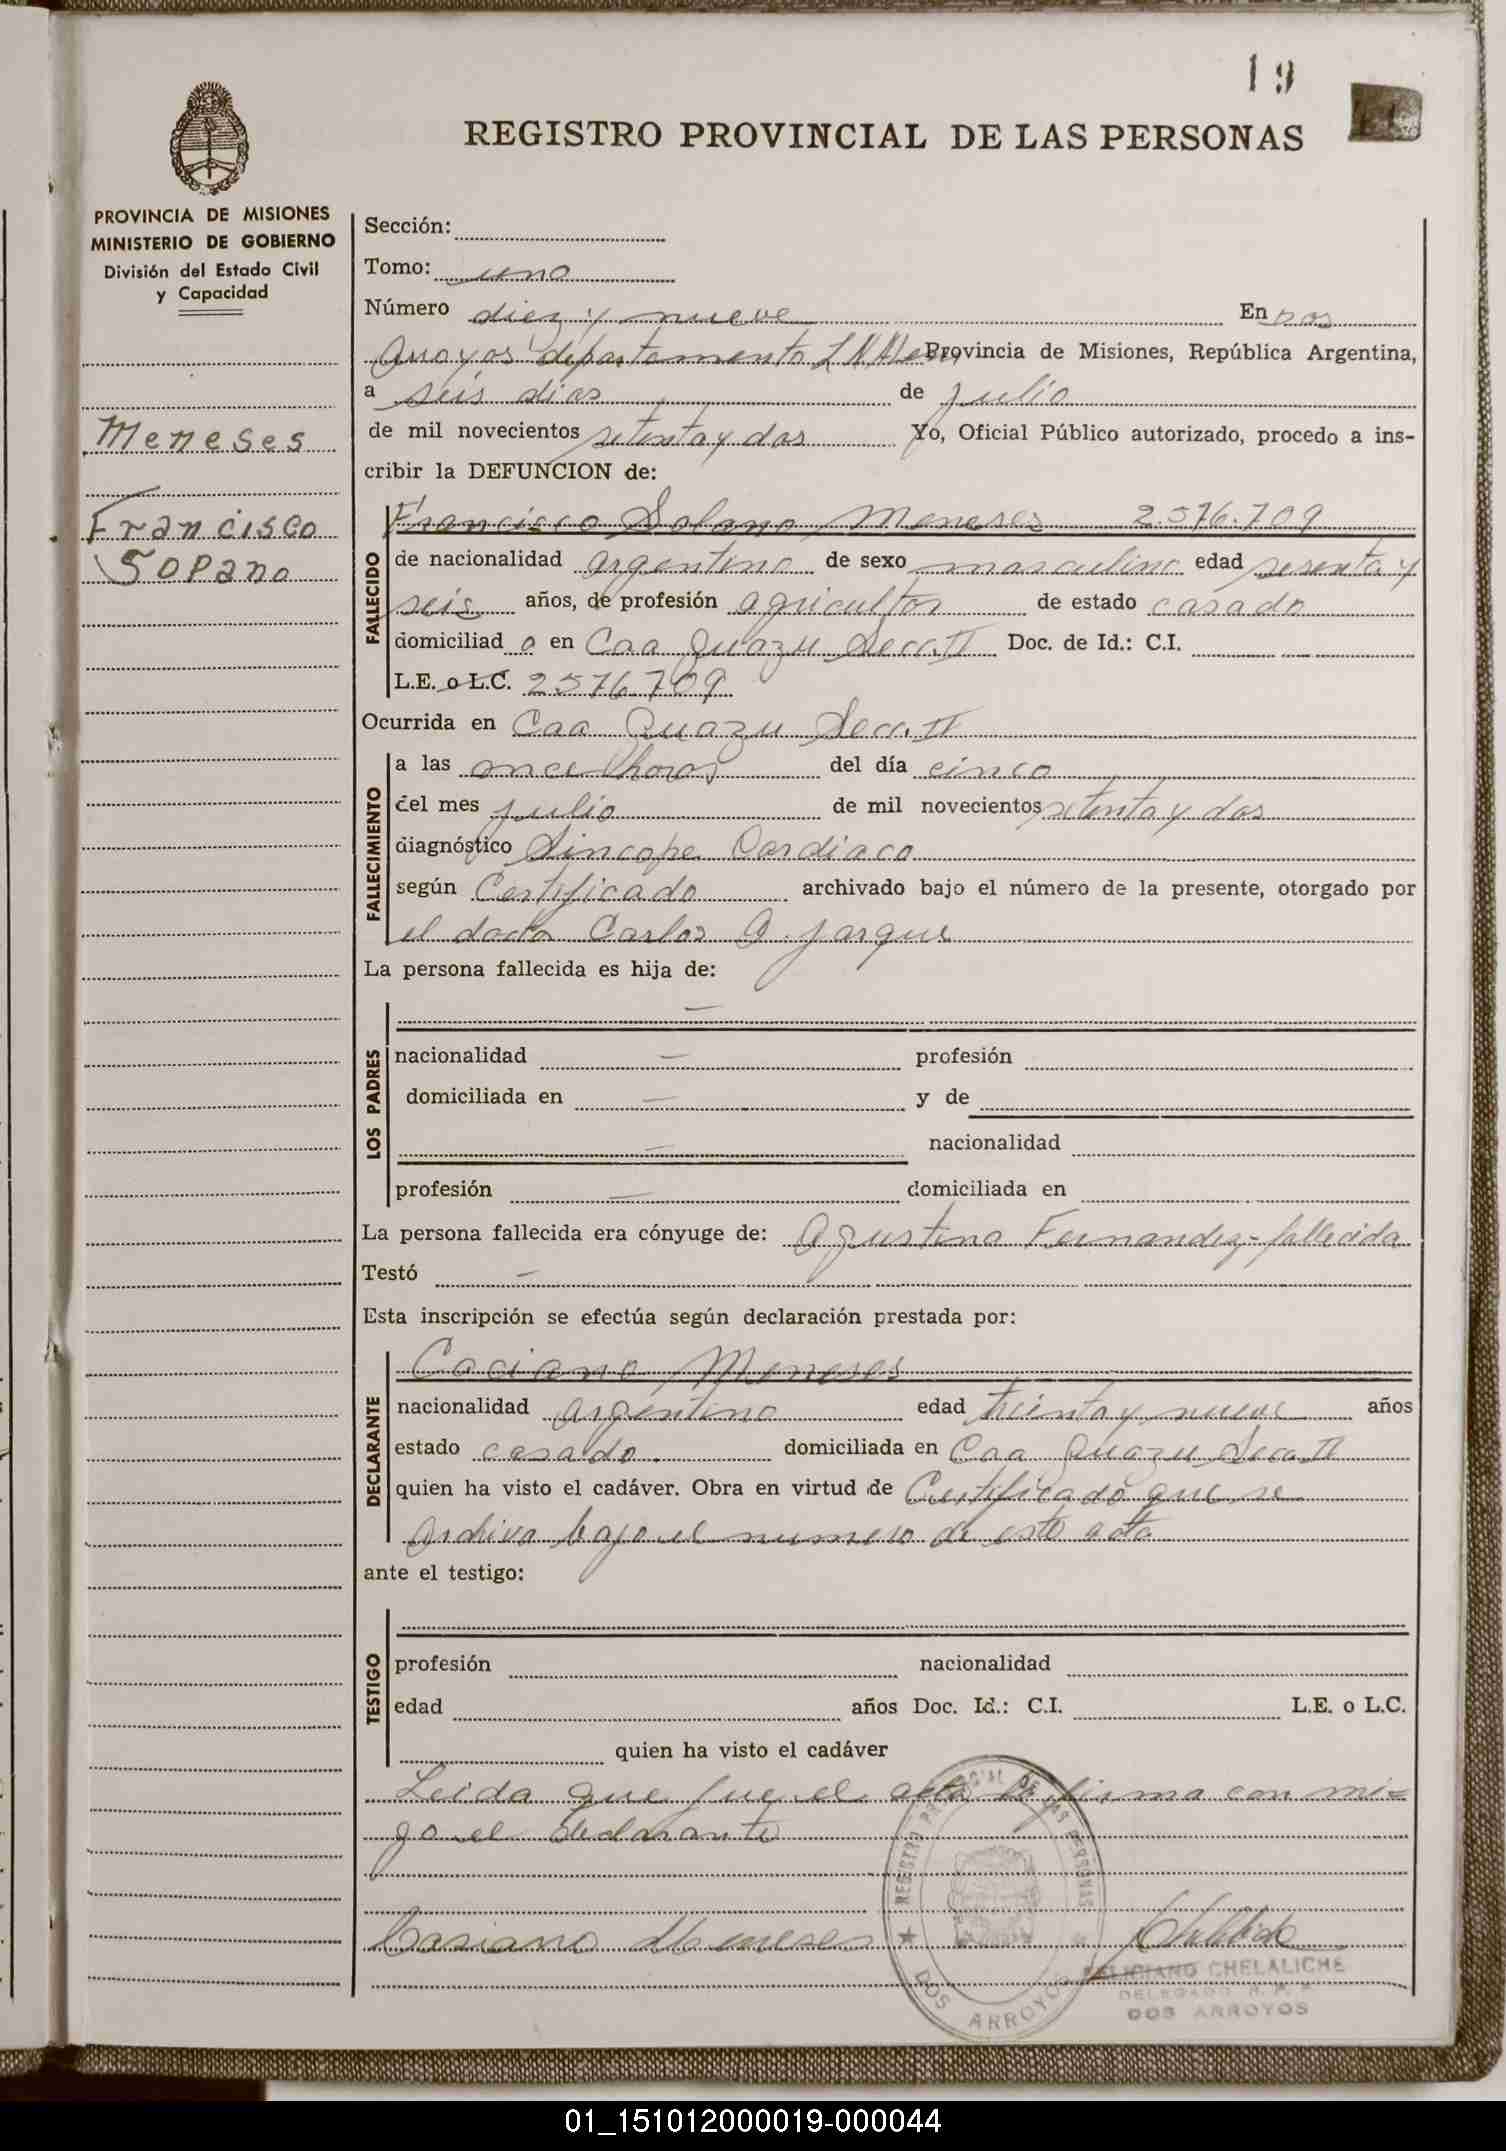 19
REGISTRO PROVINCIAL DE LAS PERSONAS
PROVINCIA DE MISIONES
MINISTERIO DE GOBIERNO
División del Estado Civil
y Capacidad
Meneses
Francisco
Sopano
Sección:
Tomo: uno
Número diez y nueve En Dos
Arroyos departamento L N Alem, Provincia de Misiones, República Argentina,
a seis dias de julio
de mil novecientos setenta y dos Yo, Oficial Público autorizado, procedo a ins-
cribir la DEFUNCION de:
Francisco Solano Meneses 2.576.709
FALLECIDO
de nacionalidad argentino de sexo masculino edad sesenta y
seis años, de profesión agricultor de estado casado
domiciliad o en Caa Guazu Secc. II Doc. de Id.: C.I.
L.E. o L.C. 2576.709
Ocurrida en Caa Guazu Secc. II
FALLECIMIENTO
a las once horas del día cinco
del mes julio de mil novecientos setenta y dos
diagnóstico Sincope Cardiaco
según Certificado archivado bajo el número de la presente, otorgado por
el doctor Carlos A. Jarque
La persona fallecida es hija de:
—
LOS PADRES
nacionalidad — profesión
domiciliada en — y de
— nacionalidad
profesión — domiciliada en
La persona fallecida era cónyuge de: Agustina Fernandez - fallecida
Testó —
Esta inscripción se efectúa según declaración prestada por:
Caciano Meneses
DECLARANTE
nacionalidad argentino edad treinta y nueve años
estado casado. domiciliada en Caa Guazu Secc. II
quien ha visto el cadáver. Obra en virtud de Certificado que se
archiva bajo el numero de esta acta
ante el testigo:
TESTIGO
profesión nacionalidad
edad años Doc. Id.: C.I. L.E. o L.C.
quien ha visto el cadáver
Leida que fue el acta la firma con mi=
go el declarante
Casiano Meneses
REGISTRO PROVINCIAL DE LAS PERSONAS
★ DOS ARROYOS ★
FELICIANO CHELALICHE
DELEGADO R. P. P.
DOS ARROYOS
01_151012000019-000044